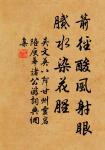 箭徑酸風射眼
膩水染花腥
吳文英八聲甘州靈岩
陪庾幕諸公遊詞典網
集